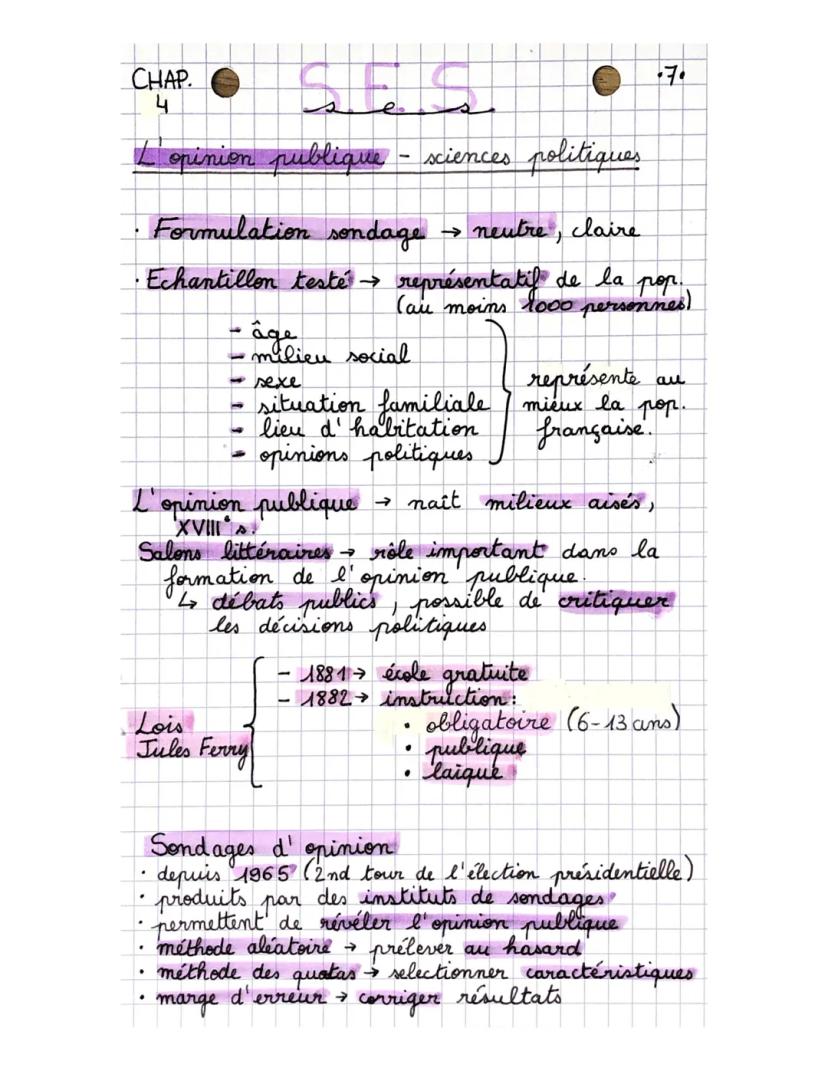 CHAP. 4
S.E.S
s e s
.7.
L'opinion publique - sciences politiques
· Formulation sondage → neutre, claire
· Echantillon testé → représentatif de la pop.
(au moins 1000 personnes)
- âge
- milieu social
- sexe
- situation familiale
- lieu d'habitation
- opinions politiques
représente au
mieux la pop.
française.
L'opinion publique → naît milieux aisés,
XVIII° s.
Salons littéraires → rôle important dans la
formation de l'opinion publique.
↳ débats publics, possible de critiquer
les décisions politiques
Lois
Jules Ferry
- 1881 → école gratuite
- 1882 → instruction :
• obligatoire (6-13 ans)
• publique
• laïque
Sondages d'opinion
· depuis 1965 (2nd tour de l'élection présidentielle)
· produits par des instituts de sondages
· permettent de révéler l'opinion publique
· méthode aléatoire → prélever au hasard
· méthode des quotas → selectionner caractéristiques
· marge d'erreur → corriger résultats